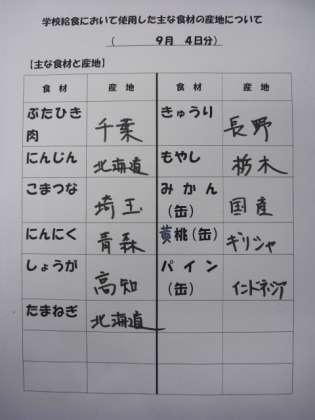 学校給食において使用した主な食材の産地について
（　９月　４日分）
【主な食材と産地】
食　材　産　地　食　材　産　地
ぶたひき肉　千葉　きゅうり　長野
にんじん　北海道　もやし　栃木
こまつな　埼玉　みかん（缶）　国産
にんにく　青森　黄桃（缶）　ギリシャ
しょうが　高知　パイン（缶）　インドネシア
たまねぎ　北海道